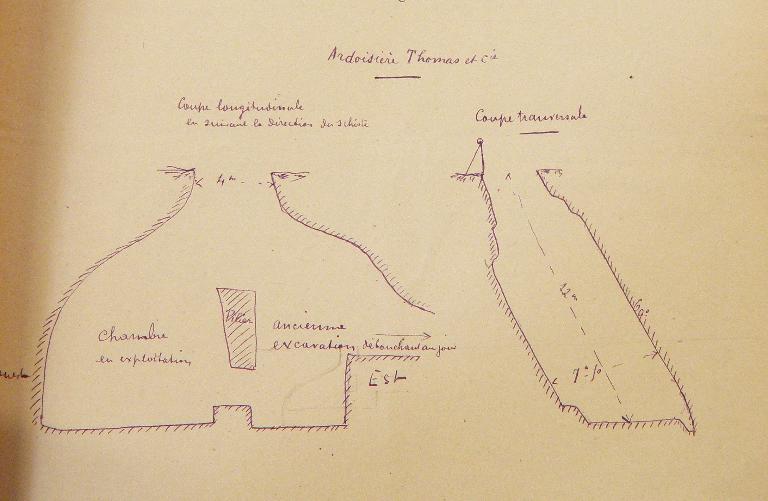 Ardoisière Thomas et Cie
Coupe longitudinale
en suivant la direction du schiste
Coupe transversale
4m
Pilier
Chambre
en exploitation
ancienne
excavation débouchant au jour
Est
12m
60°
7m50